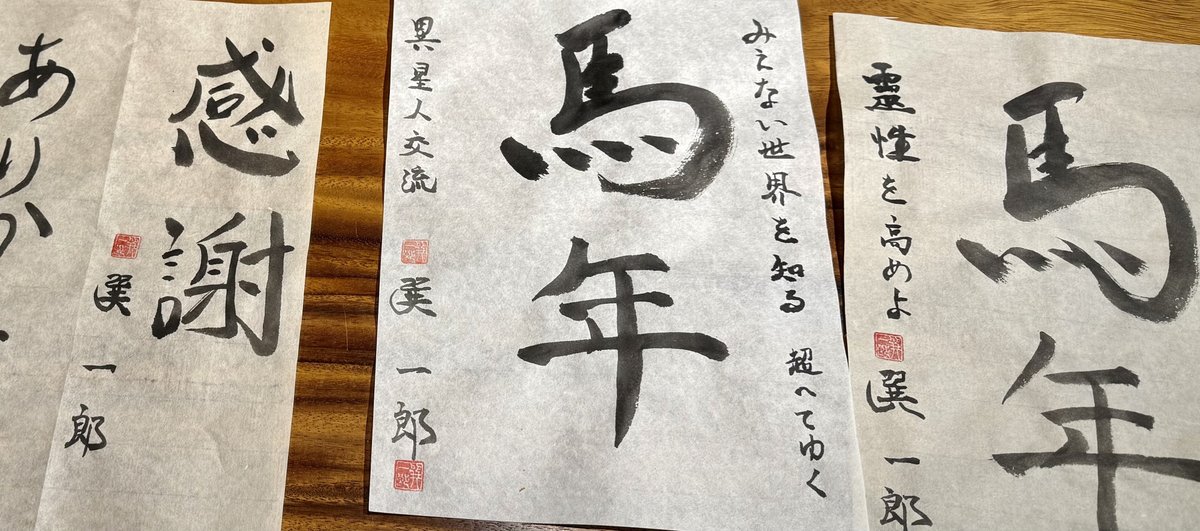 馬年
靈性を高めよ
選一郎
みえない世界を知る 超へてゆく
馬年
異星人交流
選一郎
感謝
選一郎
ありか